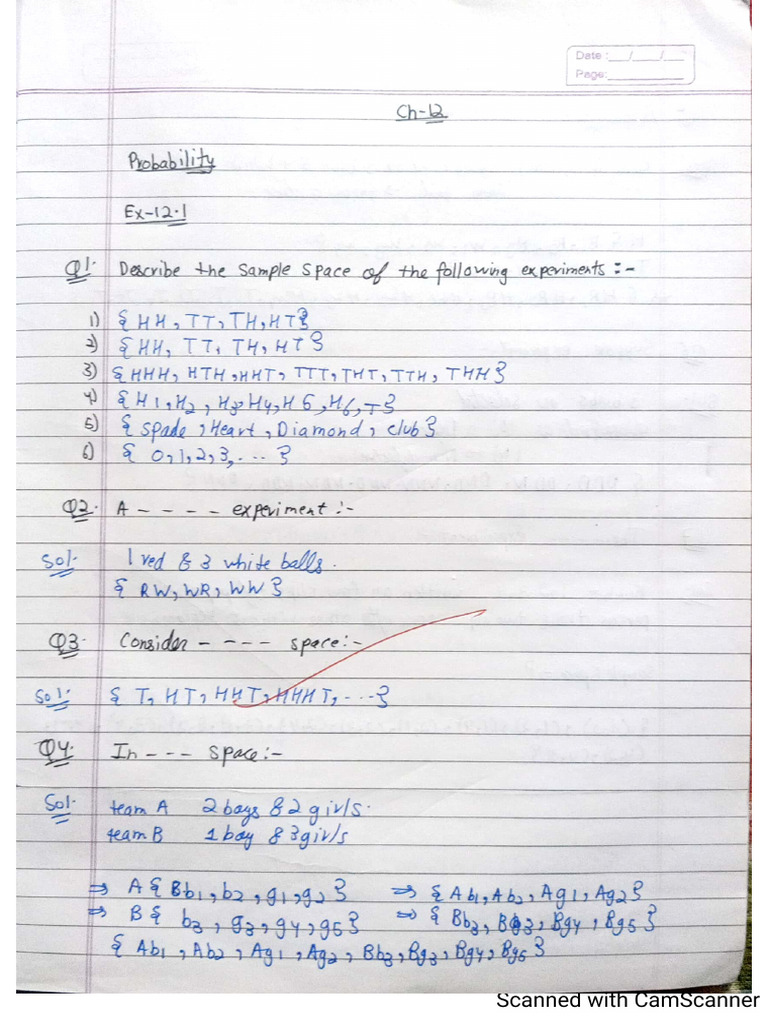 Date :__/__/__
Page:________
Ch-12
Probability
Ex-12.1
Q1. Describe the Sample Space of the following experiments :-
1) { HH, TT, TH, HT}
2) {HH, TT, TH, HT}
3) {HHH, HTH, HHT, TTT, THT, TTH, THH}
4) {H1, H2, H3, H4, H5, H6, T}
5) {Spade, Heart, Diamond, club}
6) { 0,1,2,3,... }
Q2. A - - - - experiment :-
Sol. 1 red & 3 white balls.
{ RW, WR, WW }
Q3. Consider - - - - space:-
Sol. { T, HT, HHT, HHHT, ...}
Q4. In - - - Space:-
Sol. team A 2 boys & 2 girls.
team B 1 boy & 3 girls
⇒ A { Bb1, b2, g1, g2 } ⇒ { Ab1, Ab2, Ag1, Ag2}
⇒ B { b3, g3, g4, g5} ⇒ { Bb3, Bg3, Bg4, Bg5 }
{ Ab1, Ab2, Ag1, Ag2, Bb3, Bg3, Bg4, Bg5 }
Scanned with CamScanner